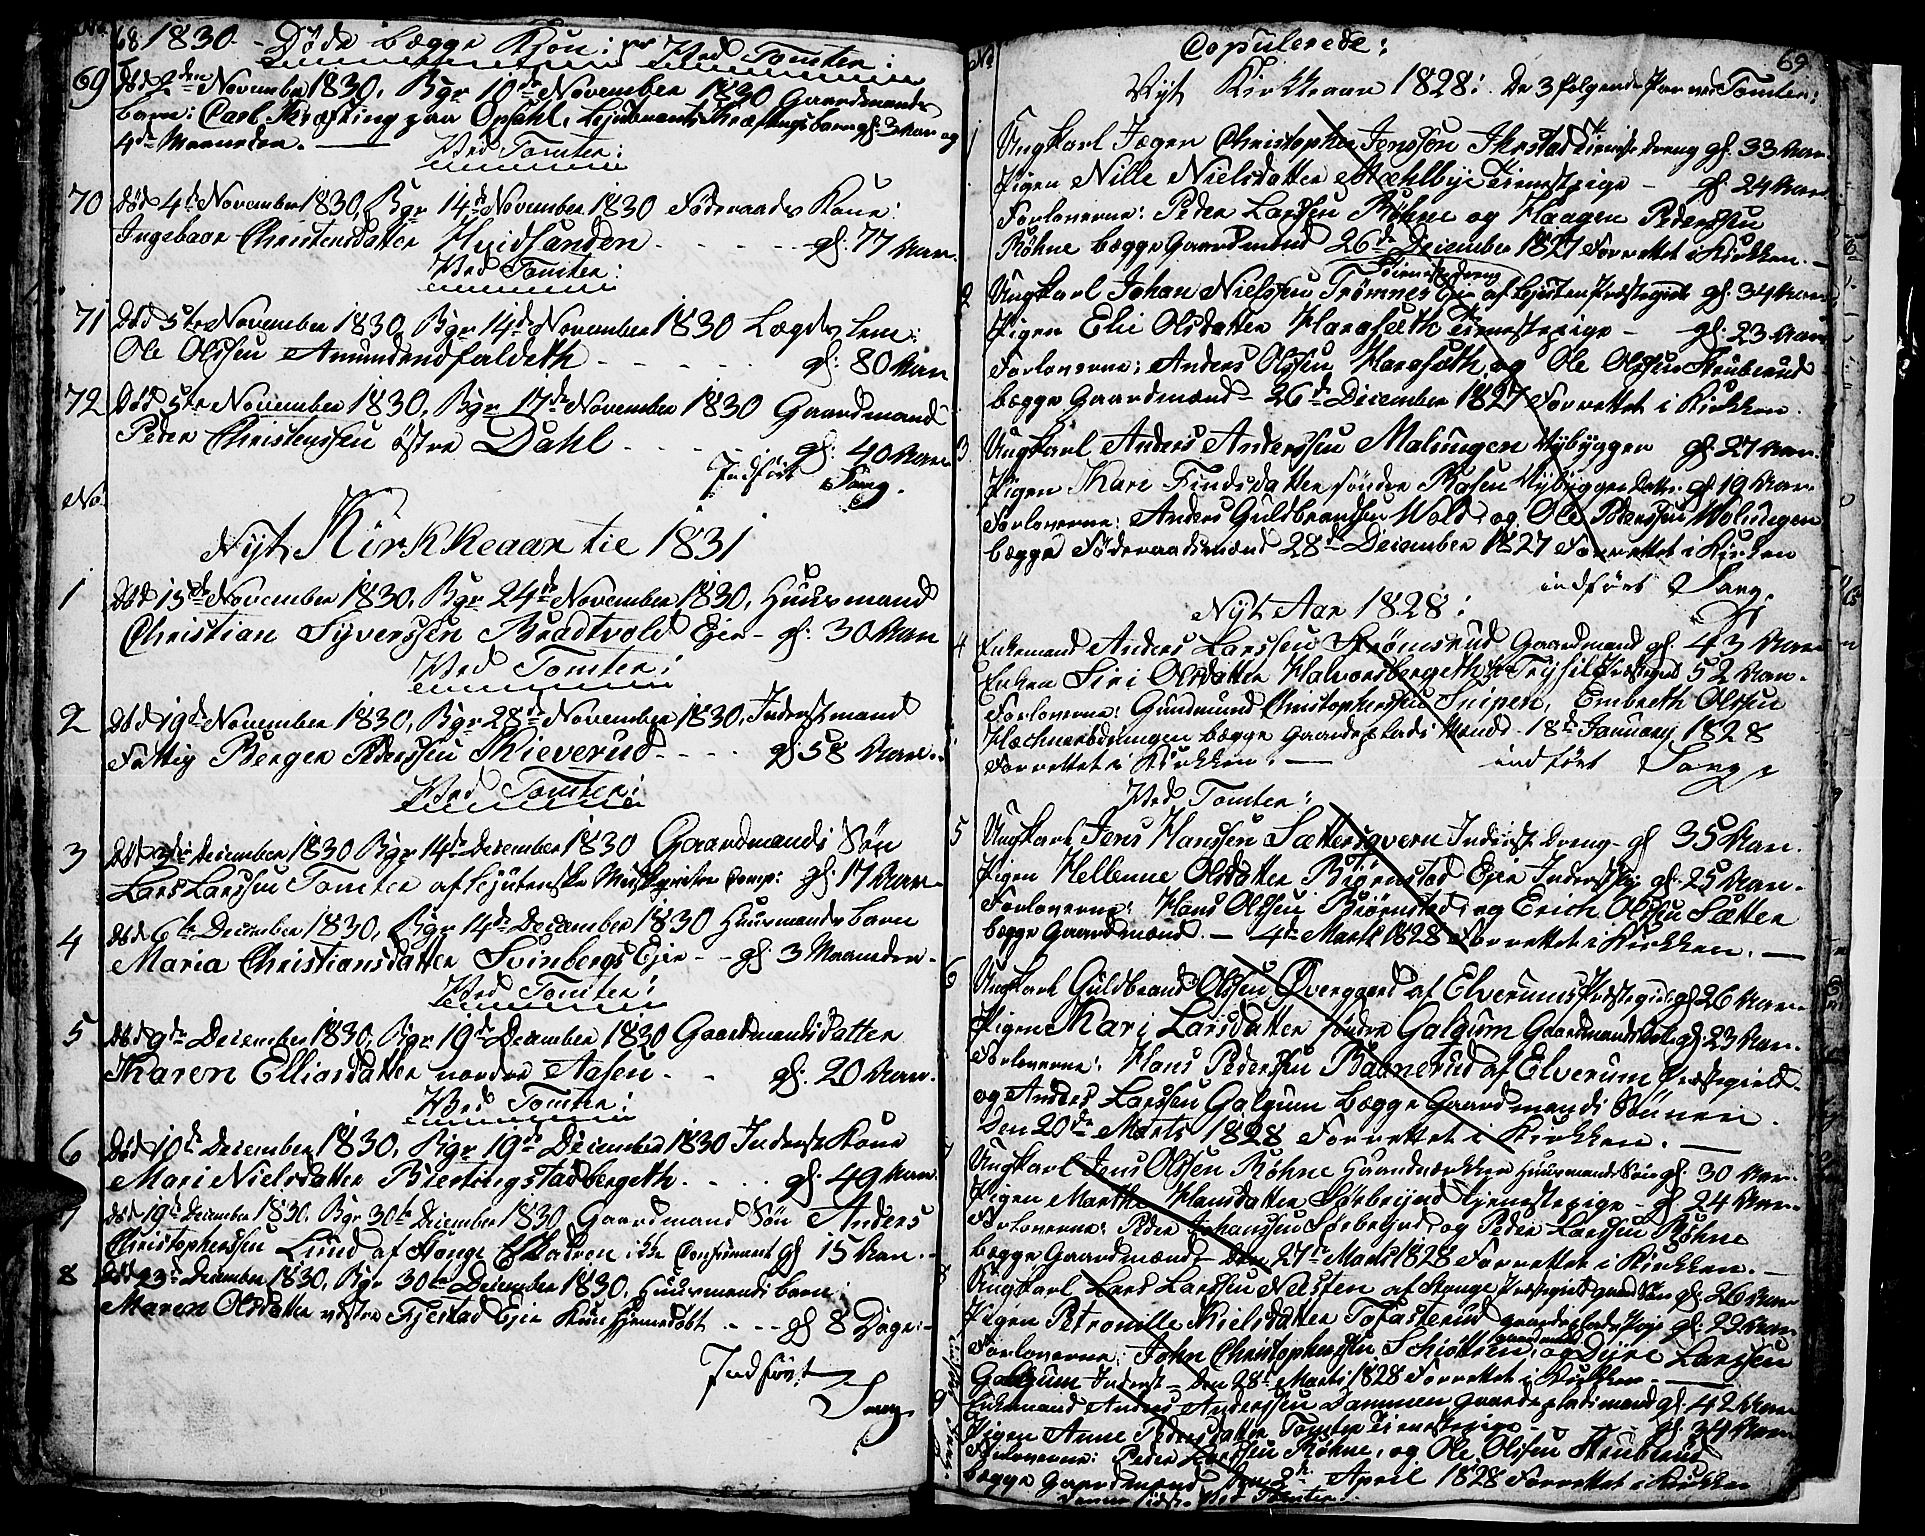 No 68. 1830. Døde bægge Kjøn: Ved Tomter:
69 Død 2den November 1830, Bgr 10de November 1830 Gaardmands
barn: Carl Kræfting paa Opsahl, Lejutnant Kræftings barn gl: 3 Aar og
4de Maaneder.
Ved Tomter:
70 Død 4de November 1830, Bgr 14de November 1830 Føderaads Kone:
Ingebaar Christensdatter Huidsanden - - - - - gl: 77 Aar.
Ved Tomter:
71 Død 5te November 1830, Bgr 14de November 1830 Lægds lem:
Ole Olssen Amundrudfaldeth - - - - gl: 80 Aar
72 Død 5te November 1830, Bgr 17de November 1830 Gaardmand
Peder Christenssen østre Dahl - - - - gl: 40 Aar
Indført Sang.
No.
Nyt Kirkkeaar tie 1831
1 Død 15de November 1830, Bgr 24de November 1830, Huusmand
Christian Syverssen Bradtvold Ejer - gl: 30 Aar
Ved Tomter:
2 Død 19de November 1830, Bgr 28de November 1830, Inderstmand
Fattig Berger Pederssen Kieverud - - - gl: 58 Aar.
Ved Tomter:
3 Død 3die December 1830 Bgr 14de December 1830 Gaardmands Søn
Lars Larssen Tomter af Lejutenske Comp: gl: 17 Aar
4 Død 6te December 1830, Bgr 14de December 1830 Huusmands barn
Maria Christiansdatter Svinbergs Ejer - - gl: 3 Maaneder.
Ved Tomter:
5 Død 9de December 1830, Bgr 19de December 1830 Gaardmandsdatter
Karen Elliasdatter nordre Aasen - - gl: 20 Aar.
Ved Tomter:
6 Død 10de December 1830, Bgr 19de December 1830 Inderst Kone
Mari Nielsdatter Biertingstadbergeth - - - - gl: 49 Aar.
7 Død 19de December 1830, Bgr 30te December 1830, Gaardmand Søn Anders
Christopherssen Lund af Stange Eskadron ikke Confirmeret gl 15 Aar.
8 Død 23de December 1830, Bgr 30te December 1830, Huusmands barn:
Maren Olsdatter vestre Kjestad Ejer Kun Hjemedøbt - - - gl 8 Dage:
Indført
Sang
No Copulerede: 69
Nyt Kirkkeaar 1828: De 3 følgende Par ved Tomter:
1 Ungkarl Jæger Christopher Jenssen Ihrstad Tieneste dreng gl: 33 Aar
Pigen Nille Nielsdatter Mæhlbye Tienestpige - gl: 24 Aar
Forloverne: Peder Larssen Røhne og Haagen Pederssen
Røhne bægge Gaardmænd 26de December 1827 Forrettet i Kirkken.
Tienestedreng
2 Ungkarl Johan Nielssen Trømnes Ejer af Leuten Præstegield gl: 34 Aar
Pigen Elie Olsdatter Harasæth Tienestpige - gl: 23 Aar
Forloverne: Anders Olssen Harasæth, og Ole Olssen Struberud
bægge Gaardmænd - 26de December 1827 Forrettet i Kirkken.
3 Ungkarl Anders Anderssen Malungen Nybygger gl: 27 Aar.
Pigen Kari Findsdatter søndre Aasen Nybygger datter gl: 19 Aar.
Forloverne: Anders Guldbrandsen Wold og Ole Pederssen Molungen
bægge Føderaadsmænd 28de December 1827 Forrettet i Kirken
indført Sang.
Nyt Aar 1828:
4 Enkemand Anders Larssen Strømsrud Gaardmand gl: 43 Aar
Enken Siri Olsdatter Halvorsbergeth fra Trysil Præstegield 52 Aar.
Forloverne: Gundmund Christopherssen Snipen, Embreth Olssen
bægge Gaardeplads Mænd - 18de January 1828
Forrettet i Kirkken. indført Sang.
Ved Tomter:
5 Ungkarl Jens Hanssen Sættersqvern Inderst Dreng - gl 35 Aar.
Pigen Hellenne Olsdatter Biørnstad Ejer Inderstpig gl: 25 Aar.
Forloverne: Hans Olssen Biørnstad, og Erich Olssen Sætter
bægge Gaardmænd. - 4de Marts 1828 Forrettet i Kirkken.
6 Ungkarl Guldbrand Olssen Øvergaard af Elverums Præstegield gl 26 Aar
Pigen Kari Larsdatter søndre Galgum Gaardmandsdatter gl: 23 Aar.
Forloverne: Hans Pederssen Bahnerud af Elverum Præstegield.
og Anders Larssen Galgum bægge Gaardmands Sønner
Den 20de Marts 1828 Forrettet i Kirkken.
7 Ungkarl Jens Olssen Røhne Haandværkker Huusmands Søn gl: 30 Aar.
Pigen Marthe Hansdatter Sørbeyud Tjenestepige - gl 24 Aar.
Forloverne: Peder Johanssen Sørbeyud og Peder Larssen Røhne
bægge Gaardmænd - Den 27de Marts 1828 Forrettet i Kirkken.
8 Ungkarl Lars Larssen Nesten af Stange Præstegield gaardsøn gl: 26 Aar
Pigen Petronille Nielsdatter Tofasterud gaardeplads Pige gl: 29 Aar
Forloverne: John Christopherssen Schiøttern, gaardmand og Dyre Larssen
Galgum Inderst - Den 28de Marts 1828 Forrettet i Kirkken.
9 Enkemand Anders Anderssen Dammen gaardepladsmand gl: 42 Aar
Pigen Anne Pedersdatter Tomter Tienestpige - gl: 34 Aar
Forloverne: Peder Larssen Røhne, og Ole Olssen Struberud
bægge Gaardmænd Den April 1828 Forrettet i Kirkken
denne sidste Ved Tomter.